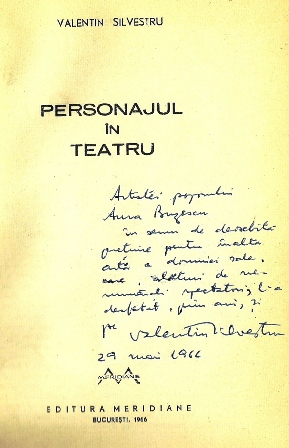 VALENTIN SILVESTRU
PERSONAJUL
ÎN
TEATRU
Artistei poporului
Aura Buzescu
în semn de deosebită
prețuire pentru înalta
artă a domniei sale,
care, alături de ne-
numărați spectatori, l-a
desfătat, prin ani, și
pe Valentin Silvestru
29 mai 1966
MERIDIANE
EDITURA MERIDIANE
BUCUREȘTI, 1966